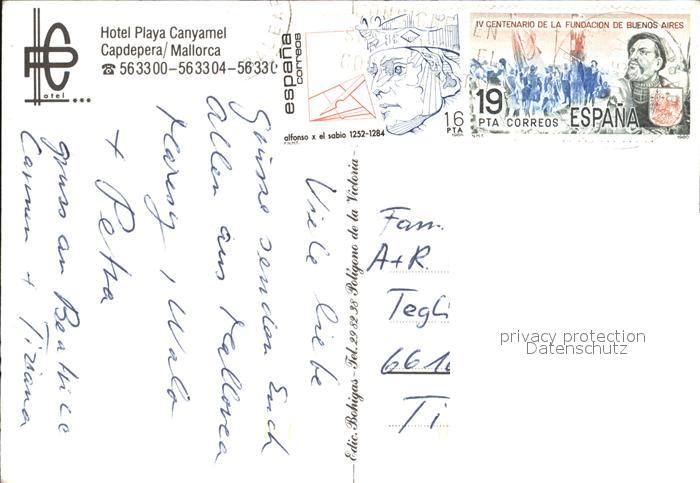 Hotel Playa Canyamel
Capdepera/ Mallorca
☎ 563300-563304-5633
Hotel...
españa
correos
alfonso x el sabio 1252-1284
16
PTA
IV CENTENARIO DE LA FUNDACION DE BUENOS AIRES
19
PTA CORREOS ESPAÑA
1980
Viele liebe
Grüsse senden Euch
Allen aus Mallorca
Walo
+ Petra
gruss an Beatrice
Carmen + Tiziana
Edic. Bohigas-Tel. 29 82 38 Polígono de la Victoria
Fam.
A+R.
Tegli
661
Ti
privacy protection
Datenschutz